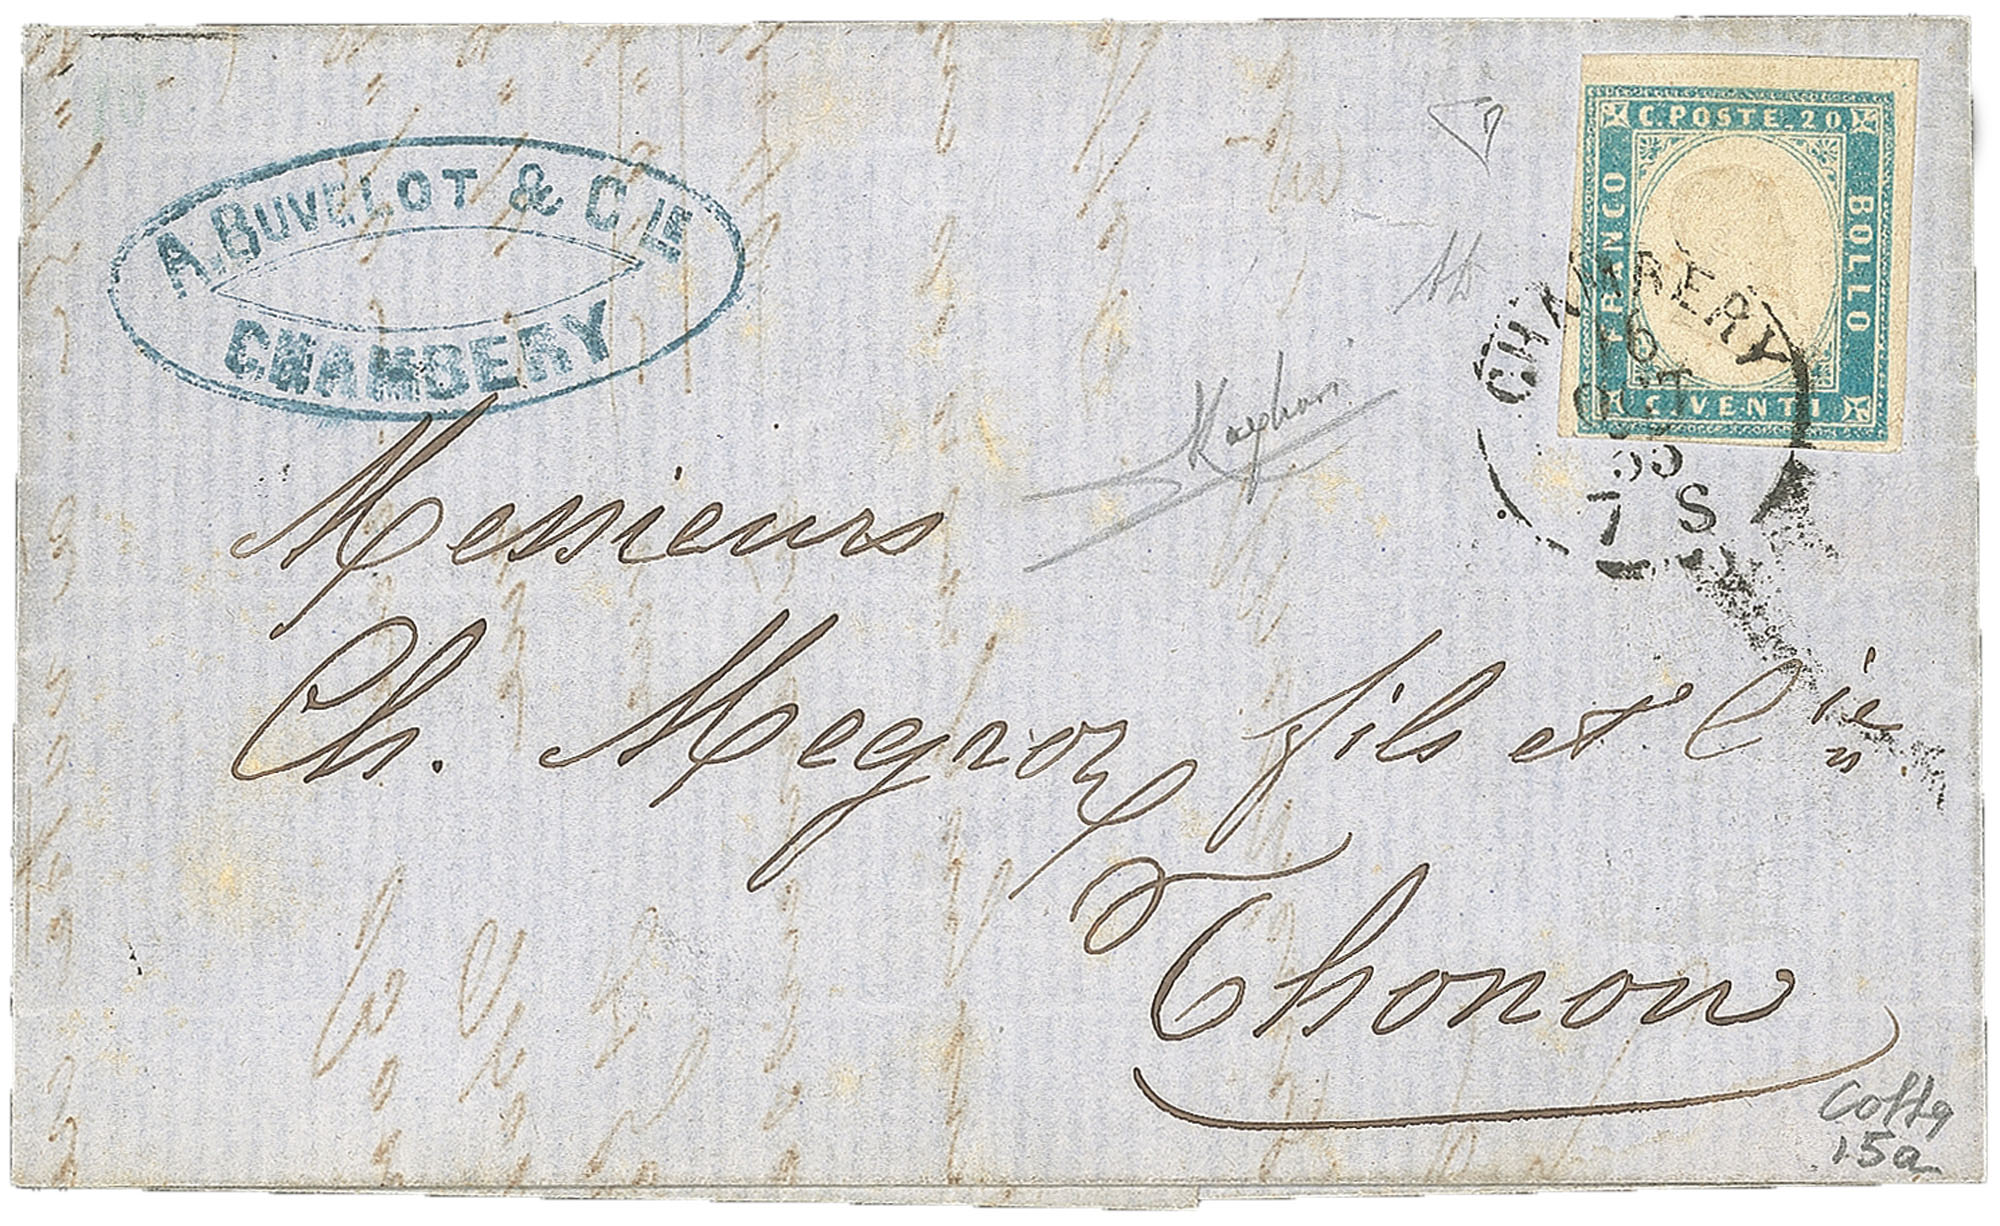 A. BUVELOT & CIE
CHAMBERY
C. POSTE. 20
FRANCO
BOLLO
C. VENTI
CHAMBERY
16
OCT
55
7 S
Messieurs
Ch. Megroz fils et Cie
Thonon
15a